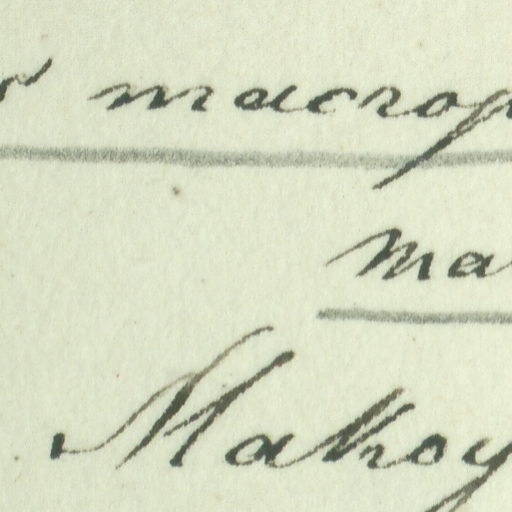 macrop
Ma
Makoy